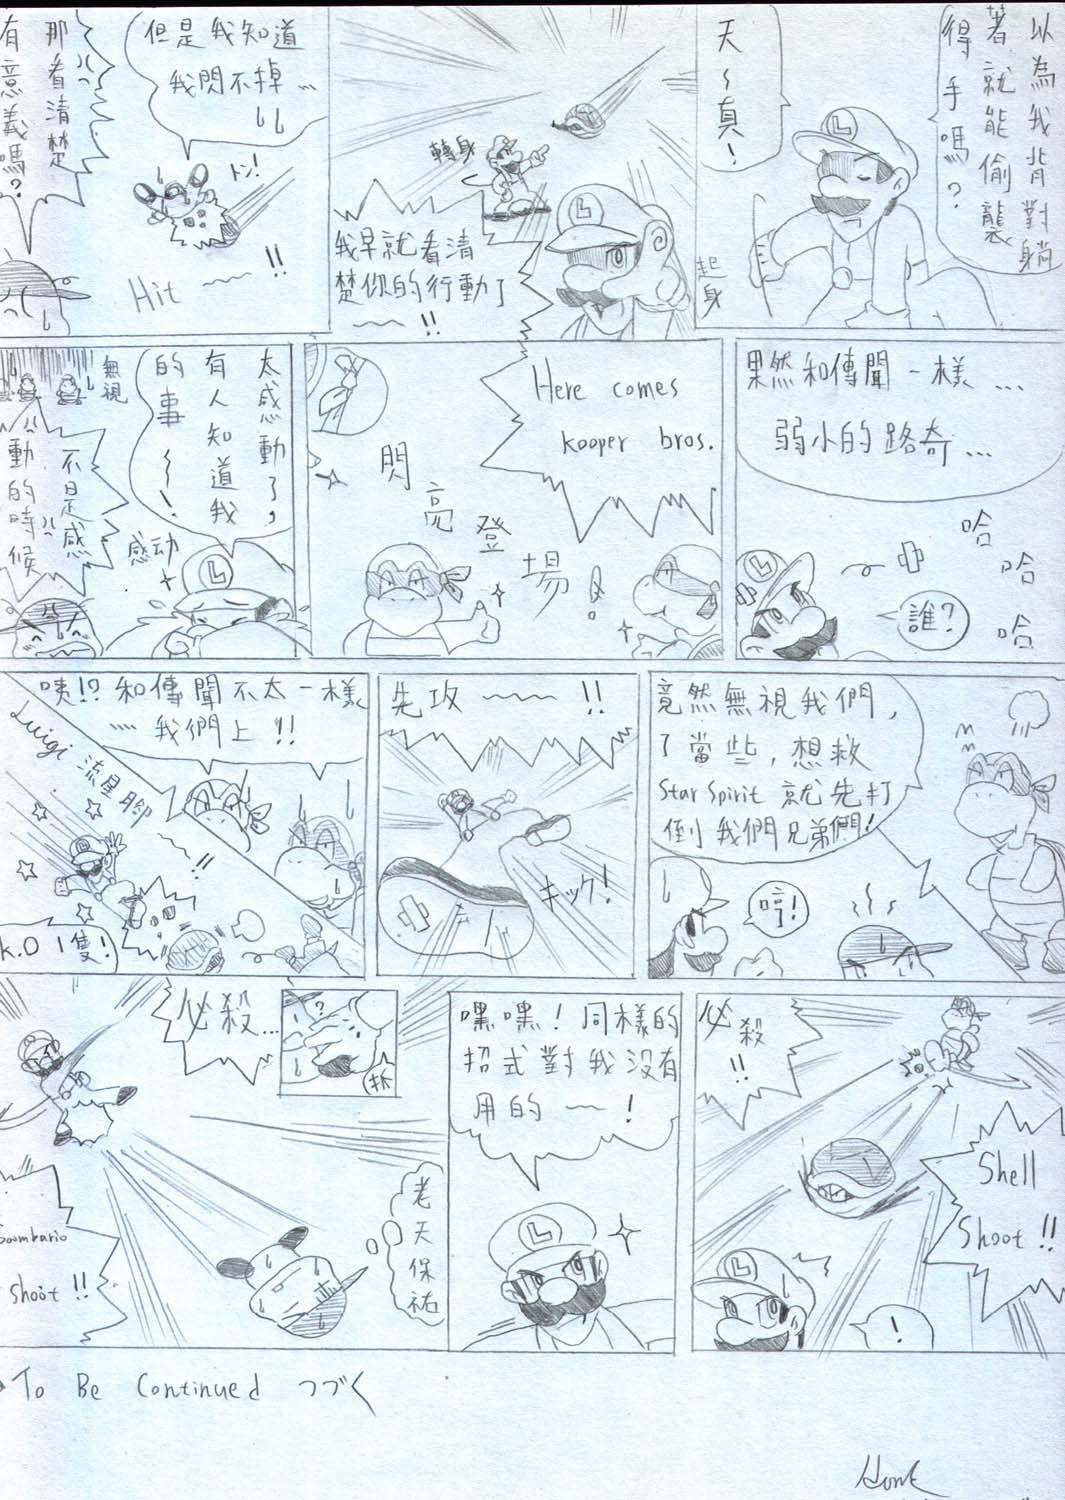 以為我背對躺
著就能偷襲
得手嗎?
天~真!
起身
轉身
我早就看清
楚你的行動了
~~!!
但是我知道
我閃不掉...
トン!
Hit ~~!!
那看清楚
有意義嗎?
果然和傳聞一樣...
弱小的路奇...
哈
哈
哈
誰?
Here comes
kooper bros.
閃亮登場!
太感動了,
有人知道我
的事~!
感动
無視
不是感
動的時候
竟然無視我們,
了當些,想救
Star Spirit 就先打
倒我們兄弟們!
哼!
先攻~~!!
キック!
咦!?和傳聞不太一樣
~我們上!!
Luigi 流星腳
~!!
K.O 1隻!
必殺
!!
Shell
Shoot!!
!
嘿嘿!同樣的
招式對我沒有
用的~!
必殺...
?
拆
老天保祐
Goombario
shoot!!
To Be Continued つづく